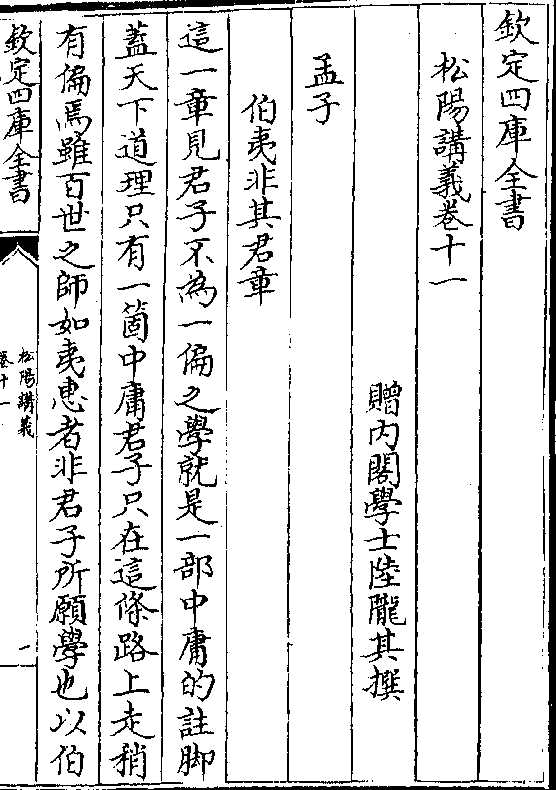 欽定四庫全書
松陽講義卷十一
贈內閣學士陸隴其撰
孟子
伯夷非其君章
這一章見君子不為一偏之學就是一部中庸的註脚
蓋天下道理只有一箇中庸君子只在這條路上走稍
有偏焉雖百世之師如夷惠者非君子所願學也以伯
欽定四庫全書
松陽講義
卷十一
一